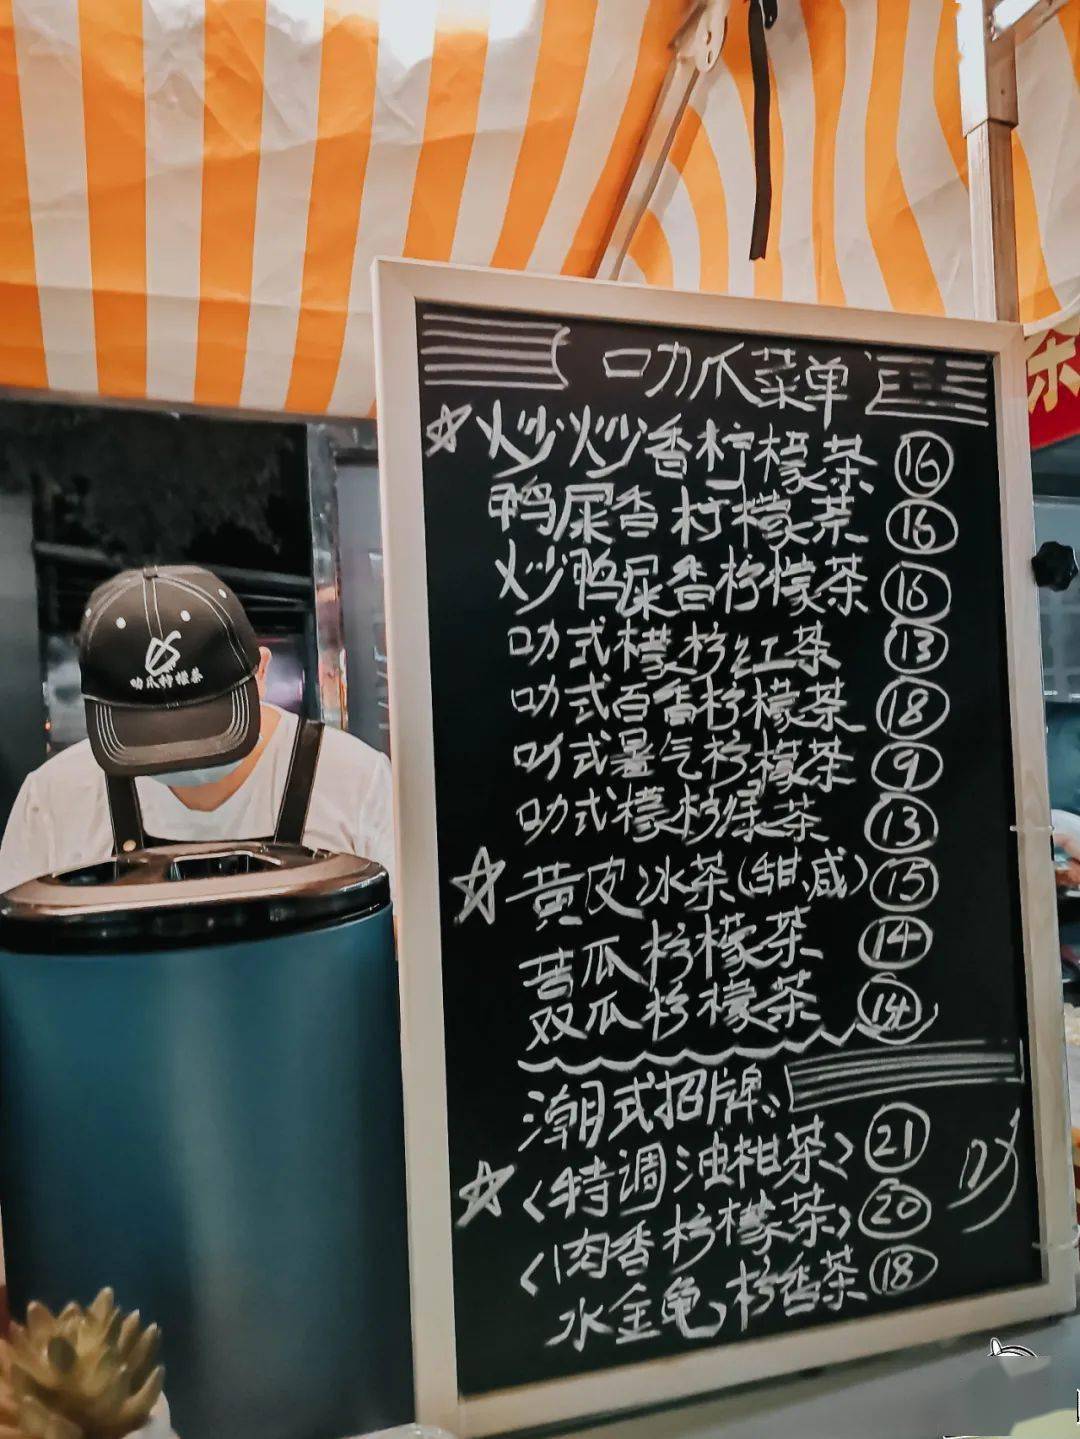 叻爪菜单
炒炒香柠檬茶 16
鸭屎香柠檬茶 16
炒鸭屎香柠檬茶 16
叻式檬柠红茶 13
叻式百香柠檬茶 18
叻式暑气柠檬茶 9
叻式檬柠绿茶 13
黄皮冰茶(甜、咸) 15
苦瓜柠檬茶 14
双瓜柠檬茶 14
潮式招牌
<特调油柑茶> 21
<肉香柠檬茶> 20
水金龟柠香茶 18
叻爪柠檬茶
茶